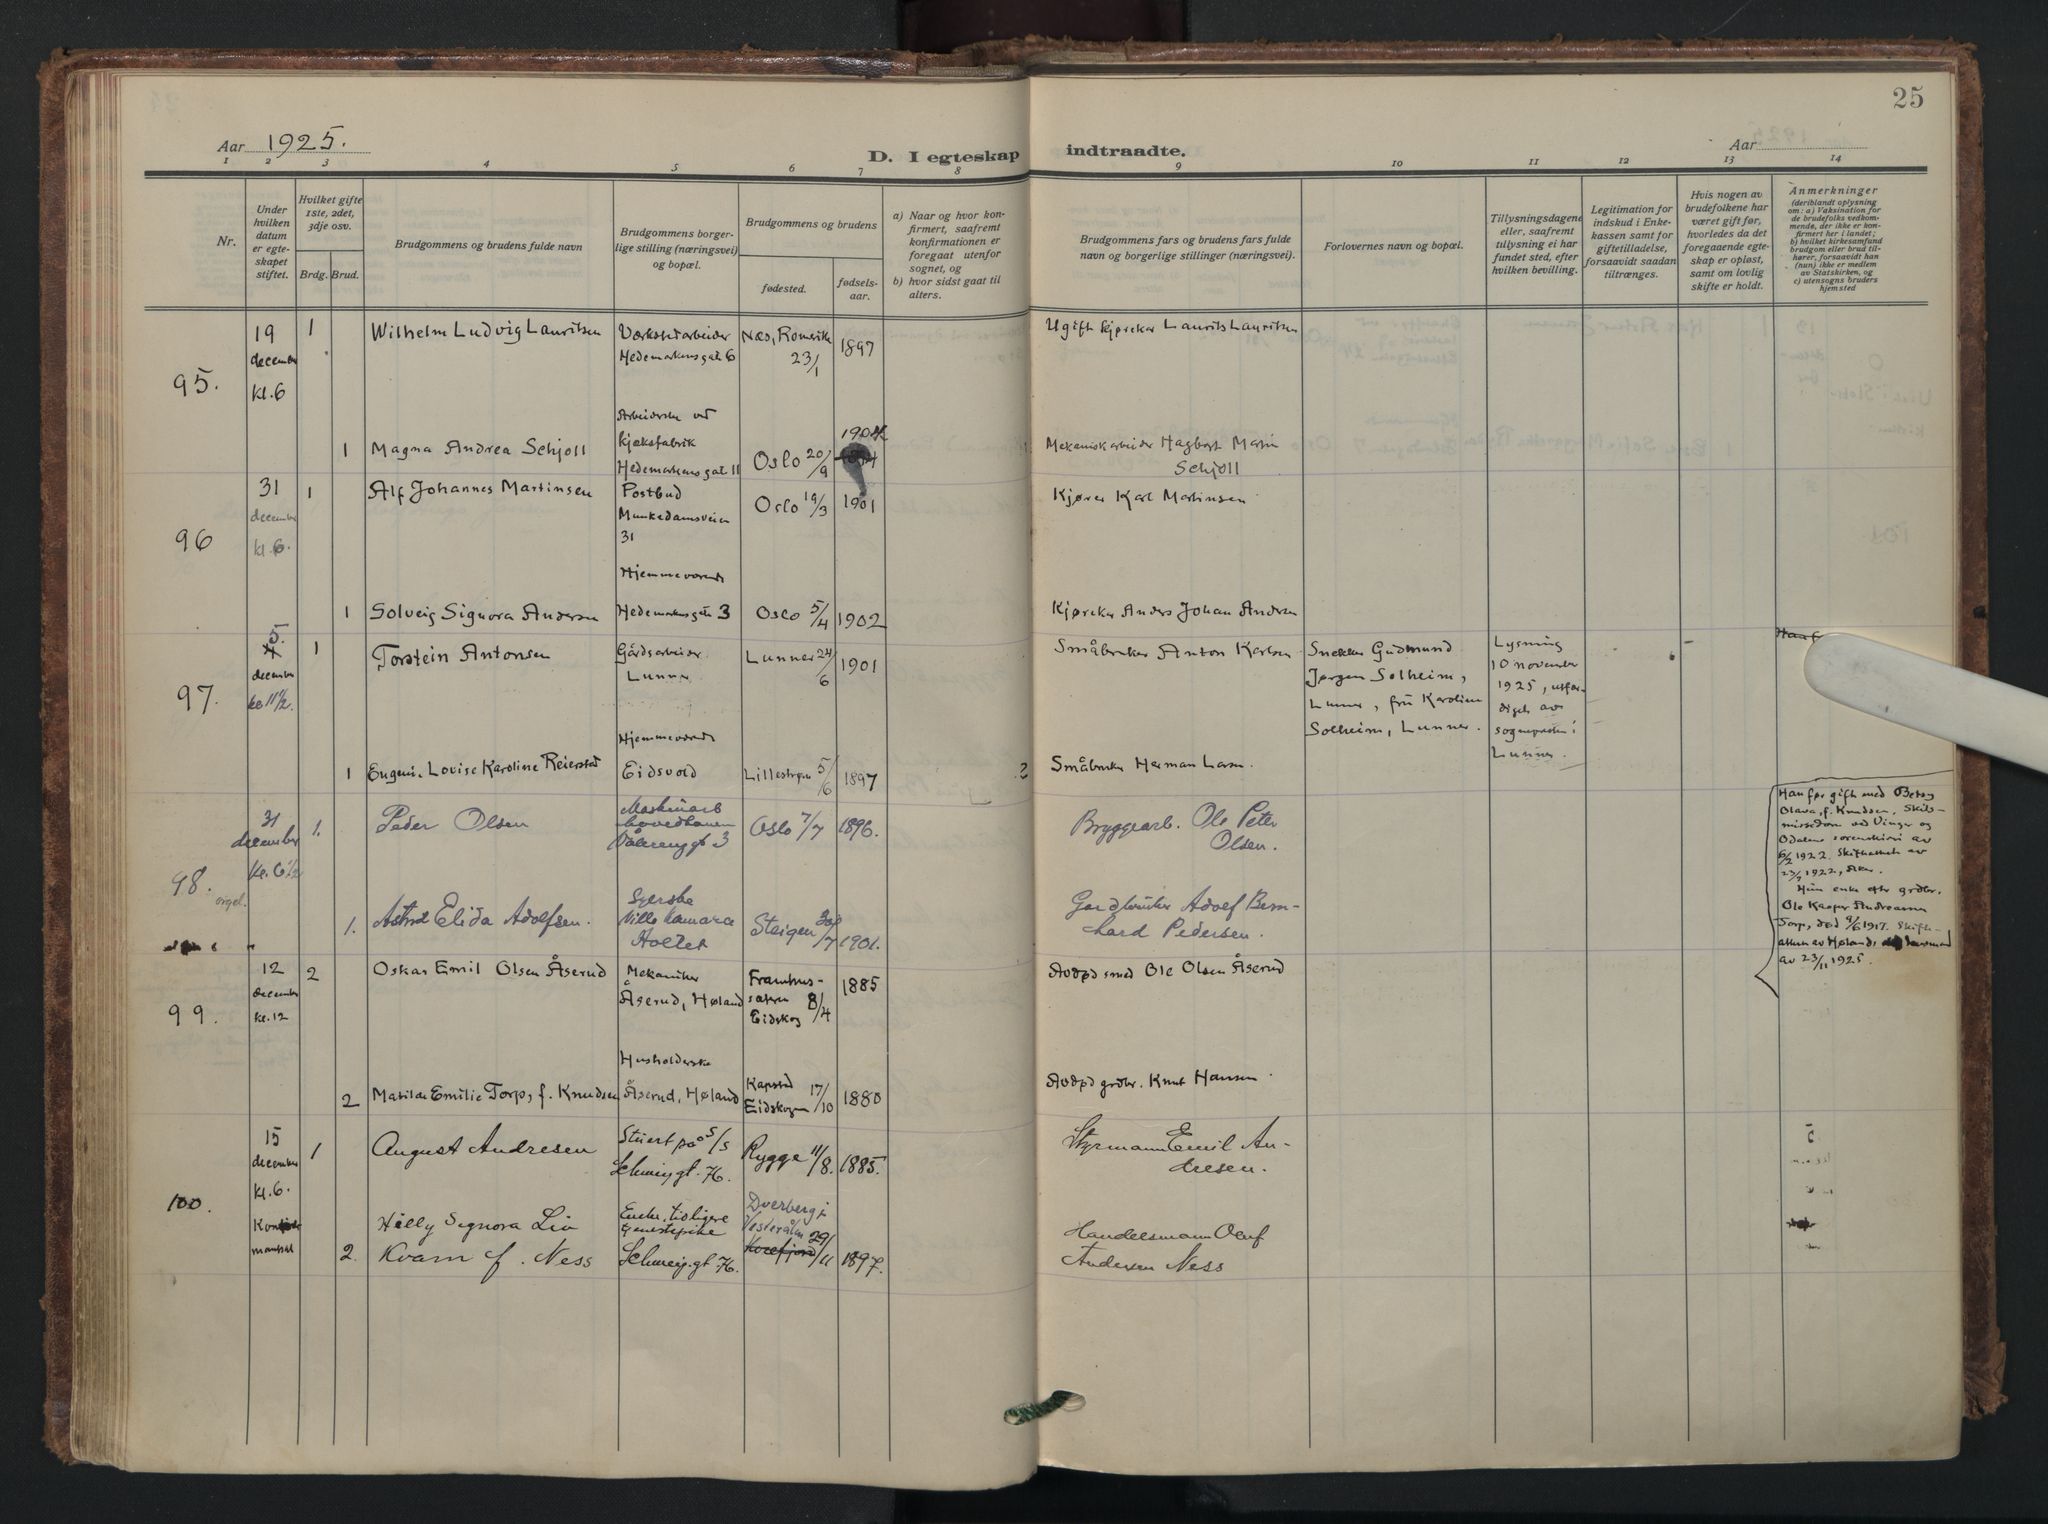 25
Aar 1925.
D. I egteskap indtraadte.
Aar
1 2 3 4 5 6 7 8 9 10 11 12 13 14
Nr.
Under hvilken datum er egteskapet stiftet.
Hvilket gifte 1ste, 2det, 3dje osv.
Brdg. Brud.
Brudgommens og brudens fulde navn
Brudgommens borgerlige stilling (næringsvei) og bopæl.
Brudgommens og brudens
fødested.
fødselsaar.
a) Naar og hvor konfirmert, saafremt konfirmationen er foregaat utenfor sognet, og
b) hvor sidst gaat til alters.
Brudgommens fars og brudens fars fulde navn og borgerlige stillinger (næringsvei).
Forlovernes navn og bopæl.
Tillysningsdagene eller, saafremt tillysning ei har fundet sted, efter hvilken bevilling.
Legitimation for indskud i Enkekassen samt for giftetilladelse, forsaavidt saadan tiltrænges.
Hvis nogen av brudefolkene har været gift før, hvorledes da det foregaaende egteskap er opløst, samt om lovlig skifte er holdt.
Anmerkninger
(deriblandt oplysning om: a) Vaksination for de brudefolks vedkommende, der ikke er konfirmert her i landet;
b) hvilket kirkesamfund brudgom eller brud tilhører, forsaavidt han (hun) ikke er medlem av Statskirken, og
c) utensogns bruders hjemsted
95.
19 december kl. 6
1 Wilhelm Ludvig Lauritsen
Verkstedarbeider
Hedemarkensgat 6
Næs, Romerike 23/1 1897
Ugift kjørekar Laurits Lauritsen
1 Magna Andrea Schjoll
Arbeiderske ved
kjæksfabrik
Hedemarkensgat 11
Oslo 20/9 1904
Mekaniskarbeider Hagbart Martin
Schjoll
96
31 december kl. 6.
1 Alf Johannes Martinsen
Postbud
Munkedamsveien
31
Oslo 19/3 1901
Kjører Karl Martinsen
1 Solveig Signora Andersen
Hjemmeværende
Hedemarksgate 3
Oslo 5/4 1902
Kjørekar Anders Johan Andersen
97.
5. december kl 11 1/2.
1 Torstein Antonsen
Gårdsarbeider
Lunner
Lunner 24/6 1901
Småbruker Anton Karlsen
Snekker Gudmund
Jørgen Solheim,
Lunner, fru Karoline
Solheim, Lunner.
Lysning
10 november
1925, utfær-
diget av
sognepresten i
Lunner.
1 Eugenie Lovise Karoline Reierstad
Hjemmeværende
Eidsvold
Lillestrøm 5/6 1897
2
Småbruker Herman Larsen.
98.
orgel.
31 december kl. 6 1/2
1. Peder Olsen
Maskinarb
Vålerenggt 3
Oslo 7/7 1896.
Bryggearb. Ole Peter
Olsen.
1. Astrid Elida Adolfsen.
Syerske
Villa Kamara
Holtet
Steigen 30/7 1901.
Gardbruker Adolf Bern-
hard Pedersen.
99.
12 december kl. 12
2 Oskar Emil Olsen Åserud
Mekaniker
Åserud, Høland
Eidskog 8/4 1885
Avdød smed Ole Olsen Åserud
2 Matilde Emilie Torp, f. Knudsen
Husholderske
Åserud, Høland
Kapstad
Eidskogen 17/10 1880
Avdød grdbr. Knut Hansen.
Han før gift med Betsy
Olava, f. Knudsen, Skils-
missedom ved Vinger og
Odalens sorenskriveri av
6/2 1922. Skifteattest av
23/9 1922, Aker.
Hun enke etter grdbr.
Ole Kasper Andreassen
Torp, død 9/6 1917. Skifte-
attest av Høland lensmand
av 23/11 1925.
100.
15 december kl. 6.
1 August Andresen
Stuert på S/S
Schweigt. 76.
Rygge 11/8. 1885.
Styrmann Emil An-
dresen.
2. Hilly Signora Liv
Kvam f. Ness
Enke, tidligere
tjenestepike
Schweig.gt 76.
Dverberg i
Vesterålen
Kvefjord 29/11 1897.
Handelsmann Oluf
Andersen Ness